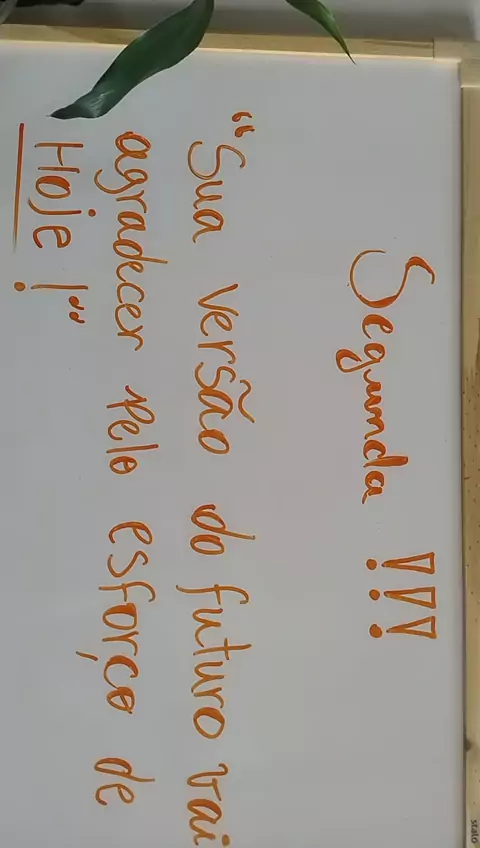 Segunda !!!
"Sua versão do futuro vai
agradecer pelo esforço de
Hoje!"
stalo